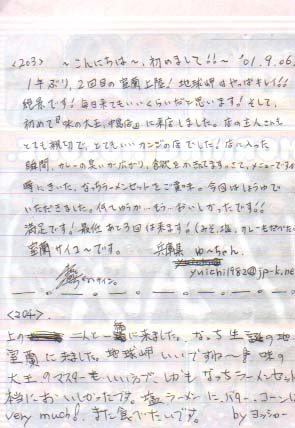 <203> 〜こんにちは〜、初めまして!!〜 '01.9.06.
1年ぶり、2回目の室蘭上陸! 地球岬はやっぱキレイ!!
絶景です! 毎日来てもいいくらいだと思います! そして、
初めて『味の大王』に来店しました。店の主人さんも
とても親切で、とてもいいカンジの店でした! 店に入った
瞬間、カレーの臭いが広がり、食欲をかきたてます。さて、メニューですが
なっちラーメンセットをご賞味。今回はしょうゆで
いただきました。何てゆうか…もう…おいしかったです!!
満足です! 最低あと3回は来ます! (みそ、塩、カレーも
室蘭サイコ〜です。 兵庫県 ゆ〜ちゃん
サイン。 yuichi1982@jp-k.ne
<204>.
上の 二人と一緒に来ました。なっち生誕の地・
室蘭に来ました。地球岬いいですね〜 味の
大王のマスターもいい しかもなっちラーメンセット
本当においしかったです。塩ラーメンに、バター、コーンに
very much! また食べたいです。 by ヨッシャー